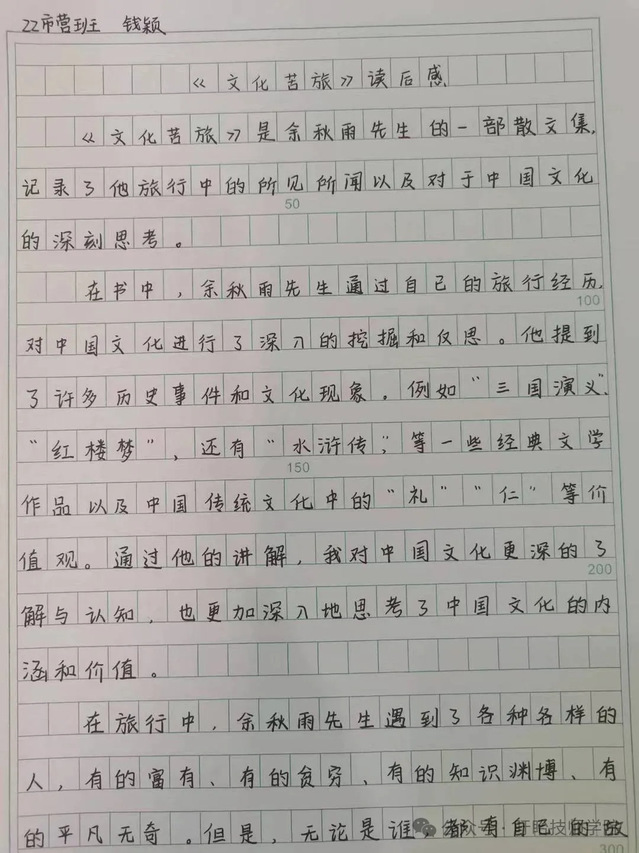 22市营班 钱颖
《文化苦旅》读后感
《文化苦旅》是余秋雨先生的一部散文集,
记录了他旅行中的所见所闻以及对于中国文化
50
的深刻思考。
在书中，余秋雨先生通过自己的旅行经历,
100
对中国文化进行了深入的挖掘和反思。他提到
了许多历史事件和文化现象。例如"三国演义"、
"红楼梦"，还有"水浒传"，等一些经典文学
150
作品以及中国传统文化中的"礼""仁"等价
值观。通过他的讲解，我对中国文化更深的了
200
解与认知，也更加深入地思考了中国文化的内
涵和价值。
在旅行中，余秋雨先生遇到了各种各样的
人，有的富有、有的贫穷、有的知识渊博、有
的平凡无奇。但是，无论是谁，都有自己的故
公众号·盱眙技师学院
300